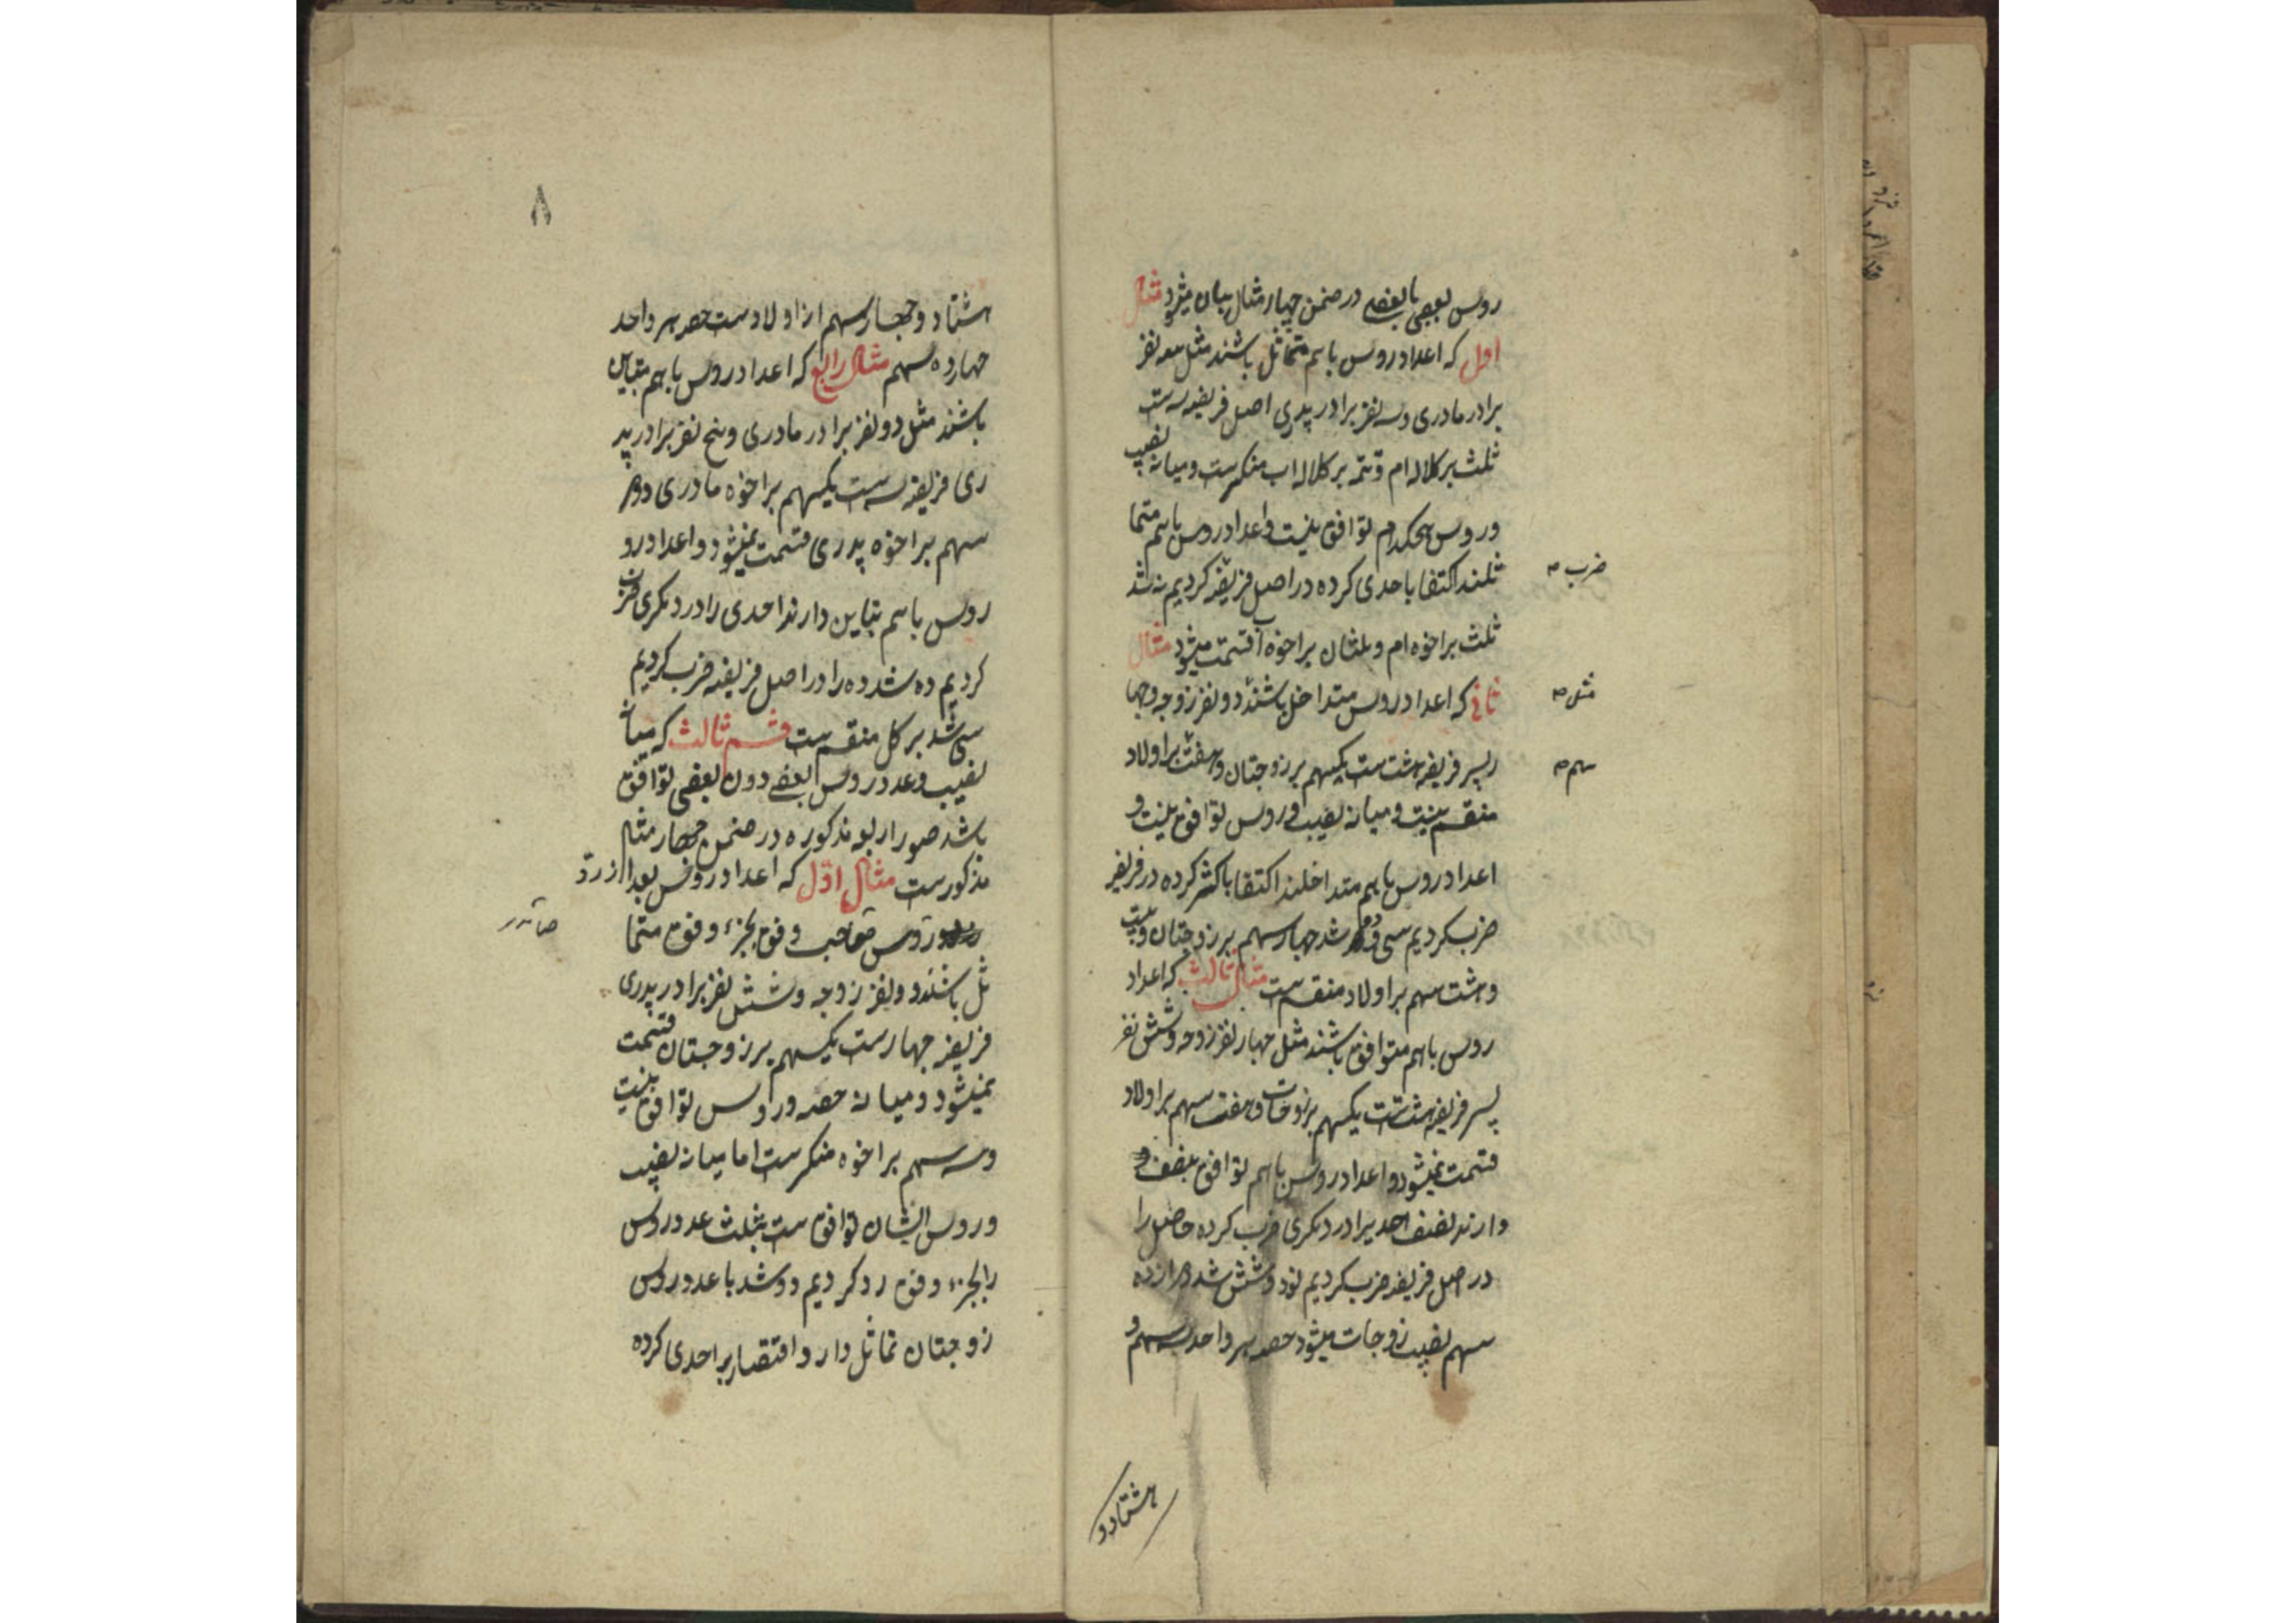 روس بعضی با بعضے در ضمن چهار مثال بیان میشود مثال
اول که اعداد روس باهم متماثل باشند مثل سه نفر
برادر مادری و سه نفر برادر پدری اصل فریضه سه ست
ثلث بر کلاله ام و تتمه بر کلاله اب منکسرست و میانه نصیب
و روس هیچکدام توافق نیست و اعداد روس باهم متما
ثلند اکتفا باحدی کرده در اصل فریضه کردیم نه شد
ضرب
ثلث بر اخوه ام و ثلثان بر اخوه اب قسمت میشود مثال
ثانی که اعداد روس متداخل باشند دو نفر زوجه و چها
مثل
ر پسر فریضه هشت ست یکسهم بر زوجتان و هفت بر اولاد
سهم
منقسم نیست و میانه نصیب و روس توافق نیست و
اعداد روس باهم متداخلند اکتفا باکثر کرده در فریضه
ضرب کردیم سی و دو شد چهار سهم بر زوجتان و بیست
و هشت سهم بر اولاد منقسم ست مثال ثالث که اعداد
روس باهم متوافق باشند مثل چهار نفر زوجه و شش نفر
پسر فریضه هشت ست یکسهم بر زوجات و هفت سهم بر اولاد
قسمت نمیشود و اعداد روس باهم توافق بنصف
دارند نصف احدیرا در دیگری ضرب کرده حاصل را
در اصل فریضه ضرب کردیم نود و شش شد دوازده
سهم نصیب زوجات میشود حصه هر واحد سه سهم و
هشتاد و
۸
هشتاد و چهار سهم از اولاد ست حصه هر واحد
چهارده سهم مثال رابع که اعداد روس باهم متباین
باشند مثل دو نفر برادر مادری و پنج نفر برادر پد
ری فریضه سه ست یکسهم بر اخوه مادری و دو
سهم بر اخوه پدری قسمت نمیشود و اعداد رو
روس باهم تباین دارند احدی را در دیگری ضرب
کردیم ده شد ده را در اصل فریضه ضرب کردیم
سی شد بر کل منقسم ست قسم ثالث که میانه
نصیب و عدد روس بعضے دون بعضی توافق
باشد صور اربعه مذکوره در ضمن چهار مثال
مذکورست مثال اول که اعداد روس بعد از رد
روس صاحب وفق بجزء وفق متما
ثل باشند دو نفر زوجه و شش نفر برادر پدری
فریضه چهارست یکسهم بر زوجتان قسمت
نمیشود و میانه حصه و روس توافق نیست
و سه سهم بر اخوه منکسرست اما میانه نصیب
و روس ایشان توافق ست بثلث عدد روس
را بجزء وفق رد کردیم دو شد با عدد روس
زوجتان تماثل دارد اقتصار بر احدی کرده